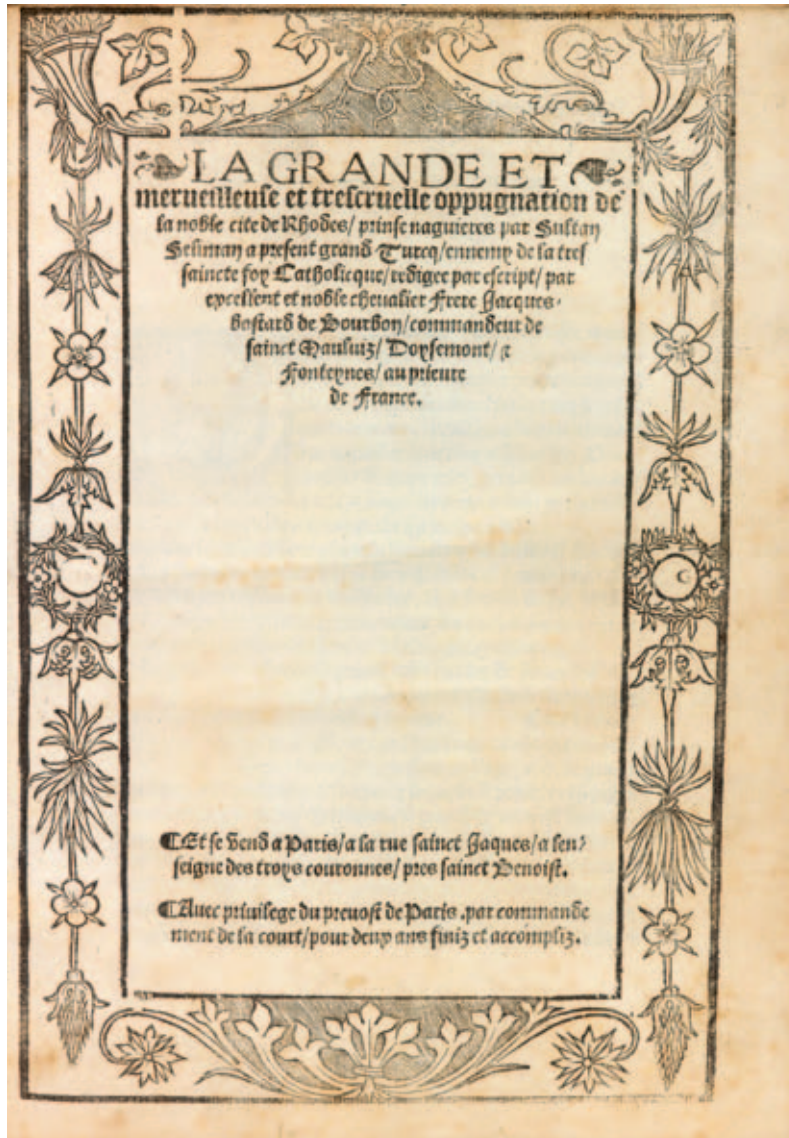 LA GRANDE ET
merueilleuse et trescruelle oppugnation de
la noble cite de Rhodes/ prinse naguieres par Sultan
Seliman a present grand Turcq/ennemy de la tres
saincte foy Catholicque/redigee par escript/ par
excellent et noble cheualier Frere Jacques
bastard de Bourbon/commandeur de
sainct Mauluiz/ Doysemont/ &
Fonteynes/ au prieure
de France.
¶Et se vend a Paris/a la rue sainct Jaques/a len-
seigne des troys couronnes/ pres sainct Benoist.
¶Auec priuilege du preuost de Paris .par commande
ment de la court/pour deux ans finiz et accompliz.